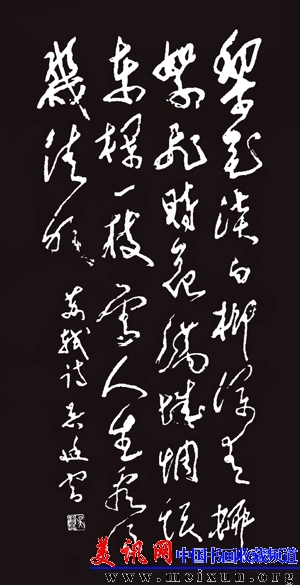 梨花淡白柳深青柳
絮飛時花滿城惆悵
東欄一枝雪人生看得
幾清明
苏轼诗 書
美讯网 中国书画收藏频道
www.meixun.org